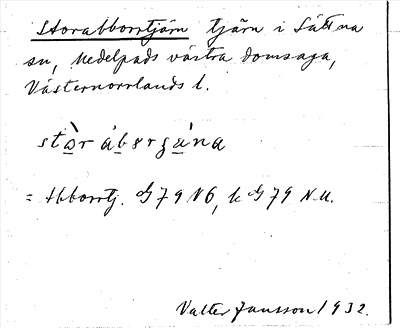 Storabborrtjärn tjärn i Sättna
sn, Medelpads västra domsaga,
Västernorrlands l.
= Abborrtj. G 79 NÖ, k G 79 N.U.
Valter Jansson 1932.